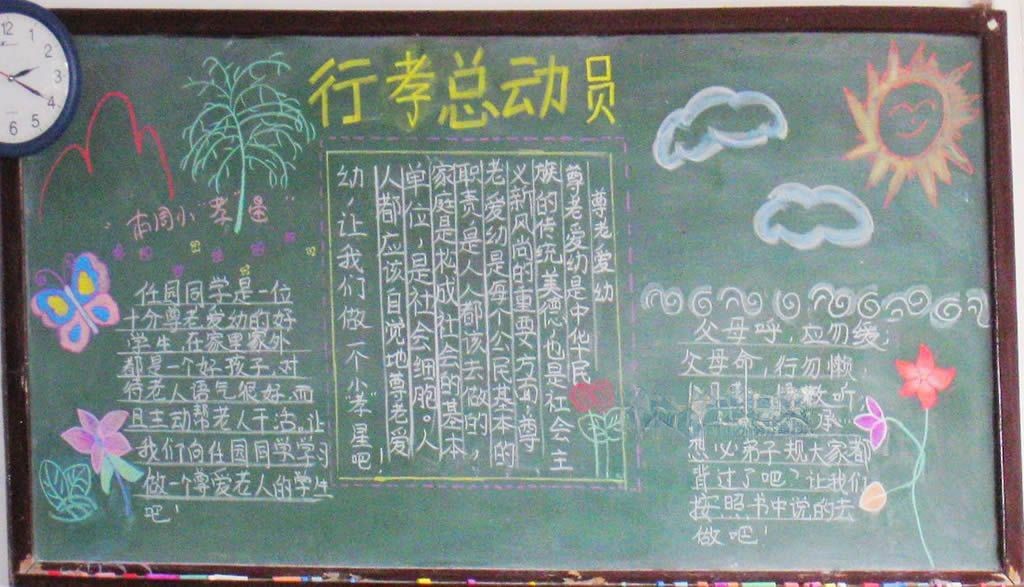 行孝总动员
本周小“孝星”
任园同学是一位
十分尊老爱幼的好
学生，在家里家外
都是一个好孩子，对
待老人语气很好，而
且主动帮老人干活。让
我们向任园同学学习
做一个尊爱老人的学生
吧！
尊老爱幼
尊老爱幼是中华民
族的传统美德，也是社会主
义新风尚的重要方面，尊
老爱幼是每个公民基本的
职责，是人人都该去做的，
家庭是构成社会的基本
单位，是社会细胞。人
人都应该自觉地尊老爱
幼，让我们做一个小“孝”星吧！
父母呼，应勿缓，
父母命，行勿懒，
听，
承”
想必弟子规大家都
背过了吧？让我们
按照书中说的去
做吧！
12
1
2
3
4
5
6